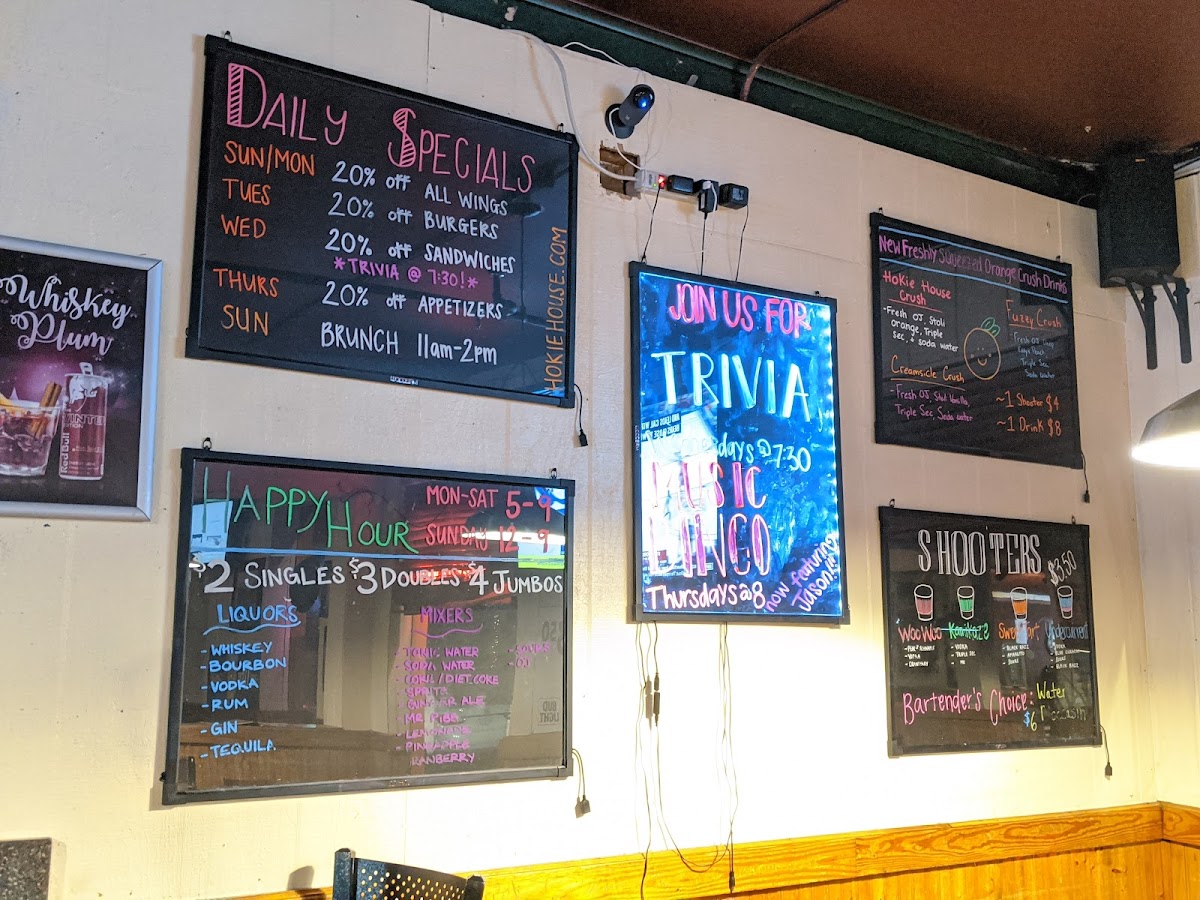 Whiskey
Plum
Red Bull
DAILY SPECIALS
SUN/MON 20% off ALL WINGS
TUES 20% off BURGERS
WED 20% off SANDWICHES
*TRIVIA @ 7:30!*
THURS 20% off APPETIZERS
SUN BRUNCH 11am-2pm
HOKIEHOUSE.COM
HAPPY HOUR
MON-SAT 5-9
SUNDAY 12-9
$2 SINGLES $3 DOUBLES $4 JUMBOS
LIQUORS
-WHISKEY
-BOURBON
-VODKA
-RUM
-GIN
-TEQUILA
MIXERS
-TONIC WATER
-SODA WATER
-COKE/DIET COKE
-SPRITE
-GINGER ALE
-MR PIBB
-LEMONADE
-PINEAPPLE
-OJ
BUD
LIGHT
JOIN US FOR
TRIVIA
@ 7:30
MUSIC
BINGO
Thursdays @ 8
now featuring
New Freshly Squeezed Orange Crush Drinks
Hokie House
Crush
-Fresh OJ, Stoli
orange, Triple
sec, + soda water
Creamsicle Crush
-Fresh OJ, Stoli Vanilla,
Triple Sec, Soda water
Fuzzy Crush
Triple Sec
Soda water
~1 Shooter $4
~1 Drink $8
SHOOTERS
$3.50
Woo Woo
Kamikaze
Sweetart
Undercurrent
- VODKA
- TRIPLE SEC
Bartender's Choice: Water
$6 Moccasin